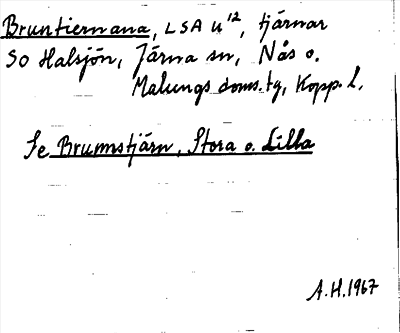 Bruntiernana, LSA U¹², tjärnar
SO Halsjön, Järna sn, Nås o.
Malungs doms. tg, Kopp. l.
Se Brunnstjärn, Stora o. Lilla
A.H. 1967